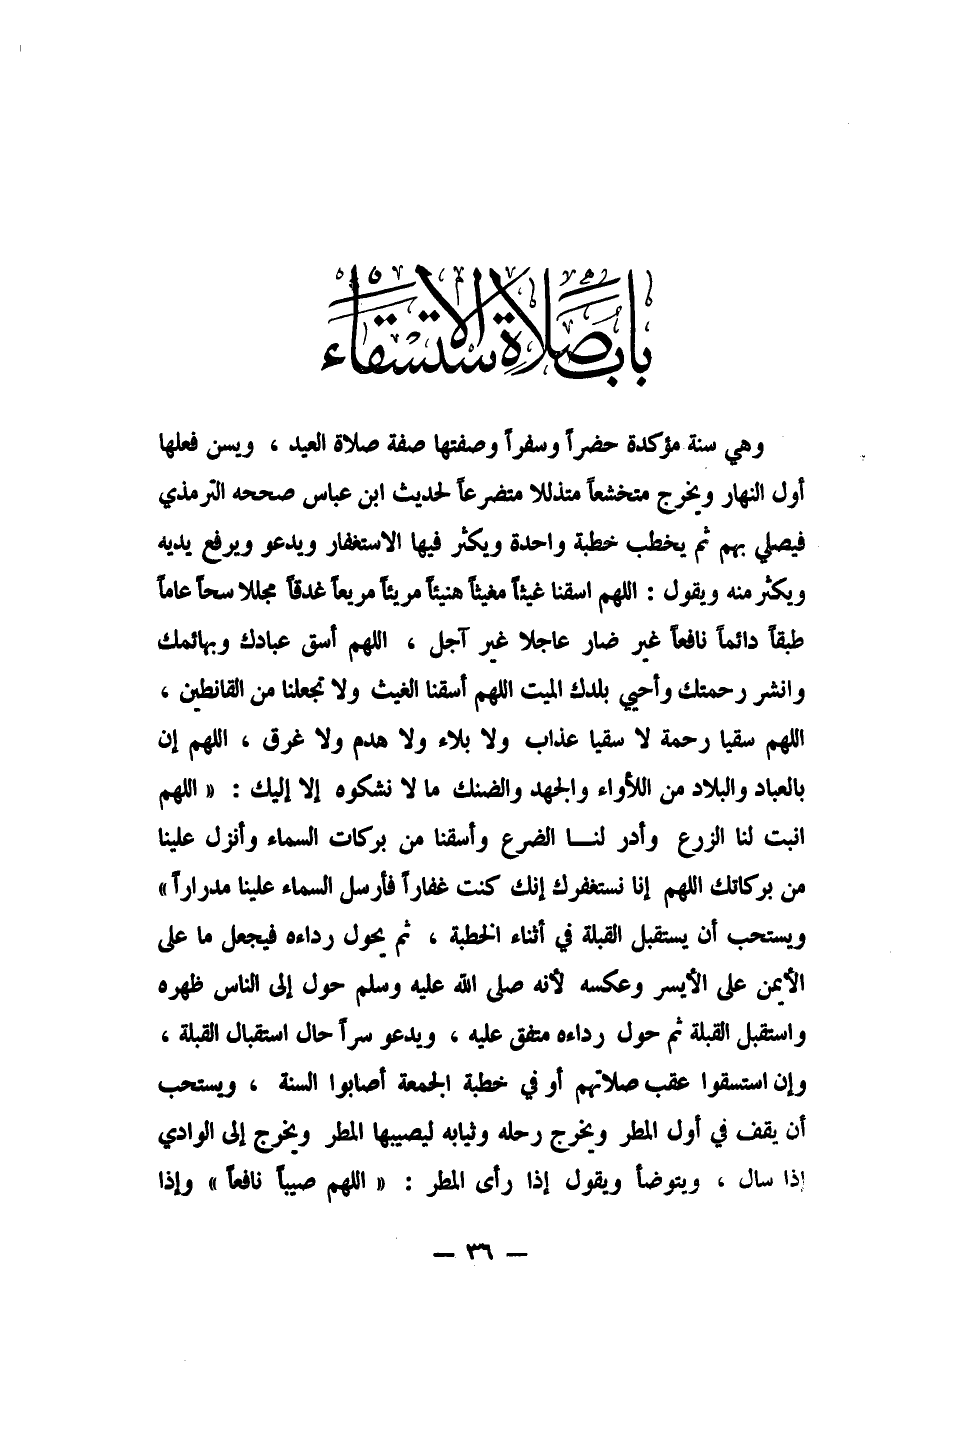 باب صلاة الاستسقاء
وهي سنة مؤكدة حضراً وسفراً وصفتها صفة صلاة العيد ، ويسن فعلها
أول النهار ويخرج متخشعاً متذللا متضرعاً لحديث ابن عباس صححه الترمذي
فيصلي بهم ثم يخطب خطبة واحدة ويكثر فيها الاستغفار ويدعو ويرفع يديه
ويكثر منه ويقول : اللهم اسقنا غيثاً مغيثاً هنيئاً مريئاً مريعاً غدقاً مجللا سحاً عاماً
طبقاً دائماً نافعاً غير ضار عاجلا غير آجل ، اللهم أسق عبادك وبهائمك
وانشر رحمتك وأحيي بلدك الميت اللهم أسقنا الغيث ولا تجعلنا من القانطين ،
اللهم سقيا رحمة لا سقيا عذاب ولا بلاء ولا هدم ولا غرق ، اللهم إن
بالعباد والبلاد من اللأواء والجهد والضنك ما لا نشكوه إلا إليك : « اللهم
انبت لنا الزرع وأدر لنـــا الضرع وأسقنا من بركات السماء وأنزل علينا
من بركاتك اللهم إنا نستغفرك إنك كنت غفاراً فأرسل السماء علينا مدراراً »
ويستحب أن يستقبل القبلة في أثناء الخطبة ، ثم يحول رداءه فيجعل ما على
الأيمن على الأيسر وعكسه لأنه صلى الله عليه وسلم حول إلى الناس ظهره
واستقبل القبلة ثم حول رداءه متفق عليه ، ويدعو سراً حال استقبال القبلة ،
وإن استسقوا عقب صلاتهم أو في خطبة الجمعة أصابوا السنة ، ويستحب
أن يقف في أول المطر ويخرج رحله وثيابه ليصيبها المطر ويخرج إلى الوادي
إذا سال ، ويتوضأ ويقول إذا رأى المطر : « اللهم صيباً نافعاً » وإذا
— ٣٦ —